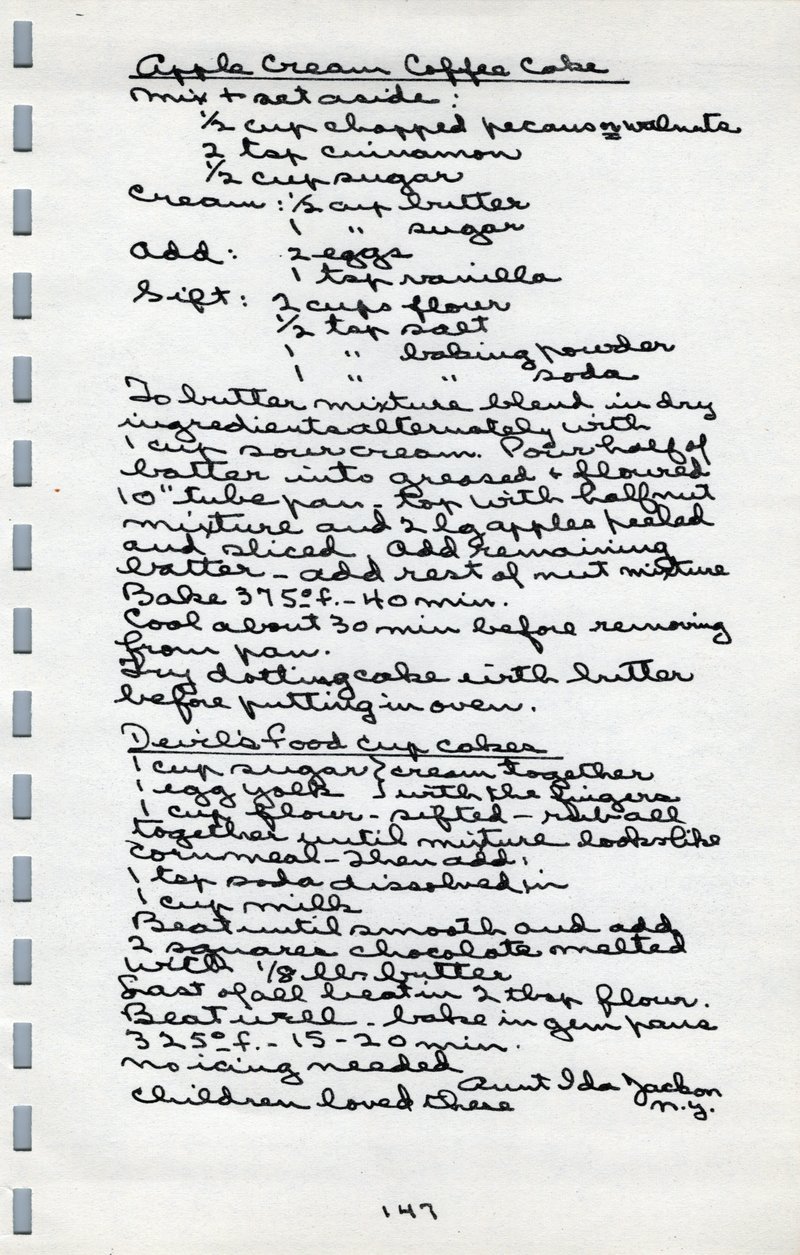 Apple Cream Coffee Cake
Mix + set aside:
1/2 cup chopped pecans or walnuts
2 tsp cinnamon
1/2 cup sugar
Cream: 1/2 cup butter
1 " sugar
Add: 2 eggs
1 tsp vanilla
Sift: 2 cups flour
1/2 tsp salt
1 " baking powder
1 " " soda
To butter mixture blend in dry
ingredients alternately with
1 cup sour cream. Pour half of
batter into greased + floured
10" tube pan - top with half nut
mixture and 2 lg apples peeled
and sliced. Add remaining
batter - add rest of nut mixture
Bake 375° f. - 40 min.
Cool about 30 min before removing
from pan.
Try dotting cake with butter
before putting in oven.
Devil's food cup cakes
1 cup sugar } cream together
1 egg yolk } with the fingers
1 cup flour - sifted - rub all
together until mixture looks like
cornmeal - then add:
1 tsp soda dissolved in
1 cup milk
Beat until smooth and add
2 squares chocolate melted
with 1/8 lb butter
Last of all beat in 2 tbsp flour.
Beat well - bake in gem pans
325° f. - 15 - 20 min.
No icing needed
Aunt Ida Jackson
children loved these N.Y.
147